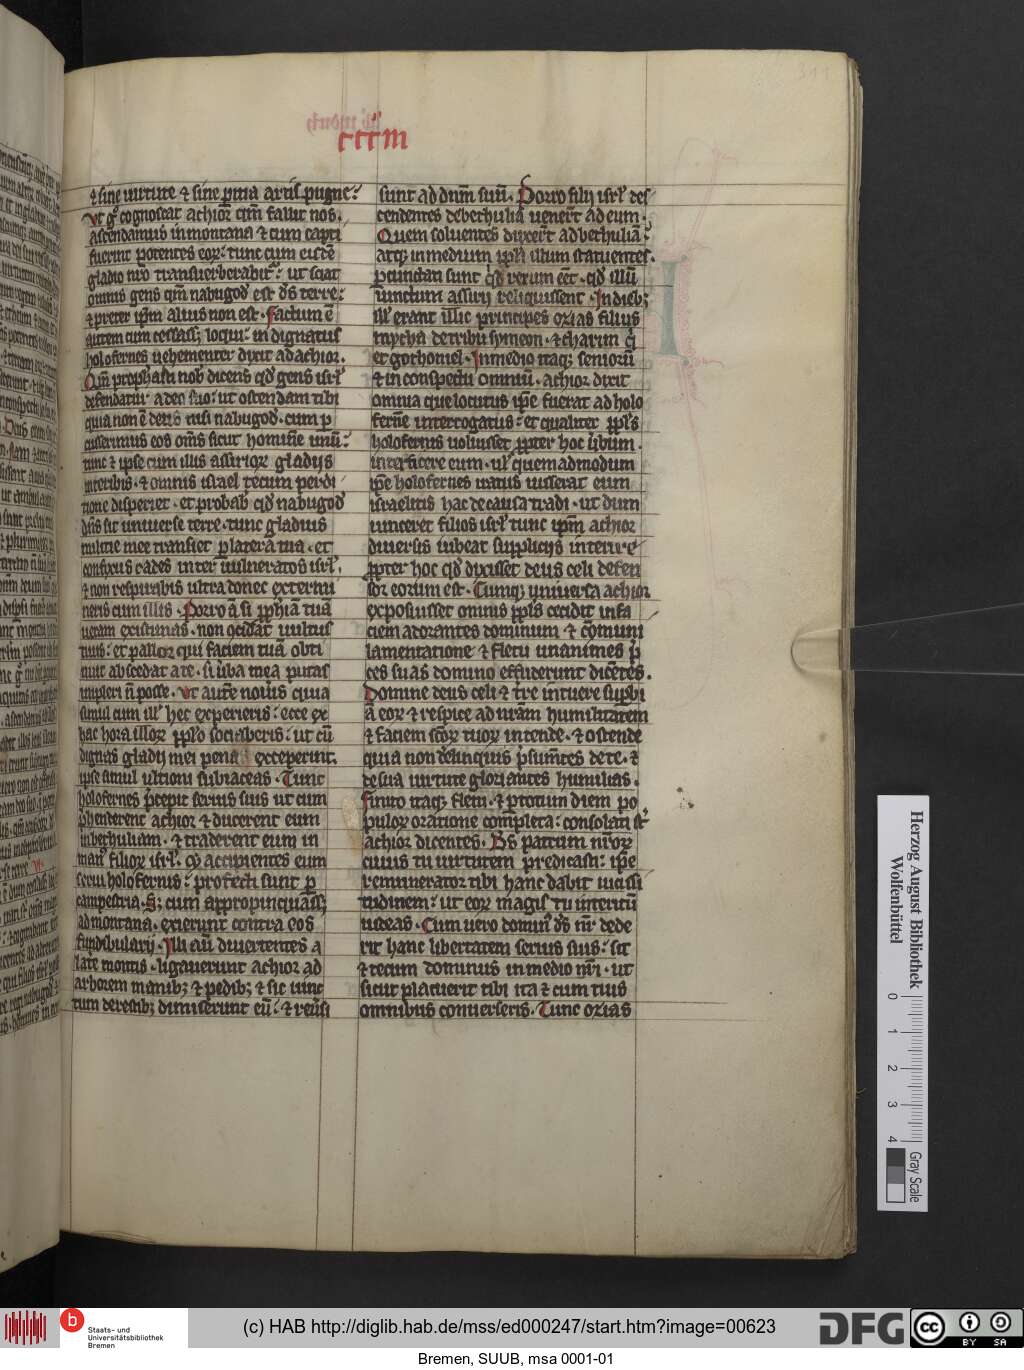 ccciii
⁊ sine uirtute ⁊ sine peritia artis pugne.
Vt gͦ cognoscat achior qm̄ fallit nos.
ascendamus in montana ⁊ cum capti
fuerint potentes eoꝝ. tunc cum eisdē
gladio nr̄o transuerberabit᷑. ut sciat
omnis gens qm̄ nabugod̄ est ds̄ terre.
⁊ preter ip̄m alius non est. Factum ē
autem cum cessass; loqui. indignatus
holofernes uehementer dixit ad achior.
Qm̄ prophasti nob̄ dicens qd̄ gens isrl̄
defendatur a deo suo. ut ostendam tibi
quia non ē deus nisi nabugod̄. cum ꝑ
cusserimus eos om̄s sicut hominē unū.
tunc ⁊ ipse cum illis assirioꝝ gladijs
interibis. ⁊ omnis israel tecum perdi
tione disperiet. et probab̄ qd̄ nabugod̄
dn̄s sit uniuerse terre. tunc gladius
militie mee transiet ꝑ latera tua. et
confixus cades inter uulneratos isrl̄.
⁊ non respirabis ultra donec extermi
neris cum illis. Porro ā si ꝓphiā tuā
ueram existimas. non ↄcidat uultus
tuus. et pallor qui faciem tuā obti
nuit abscedat a te. si ūba mea putas
impleri n̄ posse. Vt autē noūis quia
simul cum ill̄ hec experieris. ecce ex
hac hora illoꝝ ppl̄o sociaberis. ut cū
dignas gladij mei penas exceperint.
ipse simul ultioni subiaceas. Tunc
holofernes p̄cepit seruis suis ut cum
ꝓhenderent achior ⁊ ducerent eum
in bethuliam. ⁊ traderent eum in
man᷒ filioꝝ isrl̄. et accipientes eum
serui holofernis. profecti sunt ꝑ
campestria. S; cum appropinquass;
ad montana. exierunt contra eos
fundibularij. Illi aū diuertentes a
latere montis. ligauerunt achior ad
arborem manib; ⁊ pedib; ⁊ sic uinc
tum de restib; dimiserunt eū. ⁊ reūsi
sunt ad dn̄m suū. Porro filij isrl̄ des
cendentes de bethulia uener̄t ad eum.
Quem soluentes duxer̄t ad bethuliā.
atq; in medium ppl̄i illum statuentes.
ꝑcunctati sunt qd̄ rerum eēt. qd̄ illū
uinctum assirij reliquissent. In dieb;
ill̄ erant illic principes ozias filius
mycha de tribu symeon. ⁊ charim q̄
et gothoniel. In medio itaq; senioꝝ
⁊ in conspectu omniū. achior dixit
omnia que locutus ip̄e fuerat ad holo
ferne interrogatus. et qualiter ppl̄s
holofernis uoluisset ꝓpter hoc ūbum.
interficere eum. ul̄ quemadmodum
ip̄e holofernes iratus iusserat eum
israelitis hac de causa tradi. ut dum
uinceret filios isrl̄ tunc ip̄m achior
diuersis iubeat supplicijs interire
ꝓpter hoc qd̄ dixisset deus celi defen
sor eorum est. Cumq; uniuersa achior
exposuisset omnis ppl̄s cecidit in fa
ciem adorantes dominum ⁊ cōmuni
lamentatione ⁊ fletu unanimes p̄
ces suas domino effuderunt dicētes.
Domine deus celi ⁊ t̄re intuere supbi
ā eoꝝ ⁊ respice ad nr̄am humilitatem
⁊ faciem scōꝝ tuoꝝ intende. ⁊ ostende
quia non derelinquis p̄sum̄tes de te. ⁊
de sua uirtute gloriantes humilias.
Finito itaq; fletu. ⁊ ꝑ totum diem po
puloꝝ oratione completa. consolati st̄
achior dicentes. Ds̄ patrum nr̄oꝝ
cuius tu uirtutem predicasti. ip̄e
remunerator tibi hanc dabit uicissi
tudinem. ut eoꝝ magis tu interitū
uideas. Cum uero domin᷒ ds̄ nr̄ dede
rit hanc libertatem seruis suis. sit
⁊ tecum dominus in medio nr̄i. ut
sicut placuerit tibi ita ⁊ cum tuis
omnibus conuerseris. Tunc ozias
Herzog August Bibliothek
Wolfenbüttel
0 1 2 3 4
Gray Scale
b Staats- und
Universitätsbibliothek
Bremen
(c) HAB http://diglib.hab.de/mss/ed000247/start.htm?image=00623
DFG
cc BY SA
Bremen, SUUB, msa 0001-01